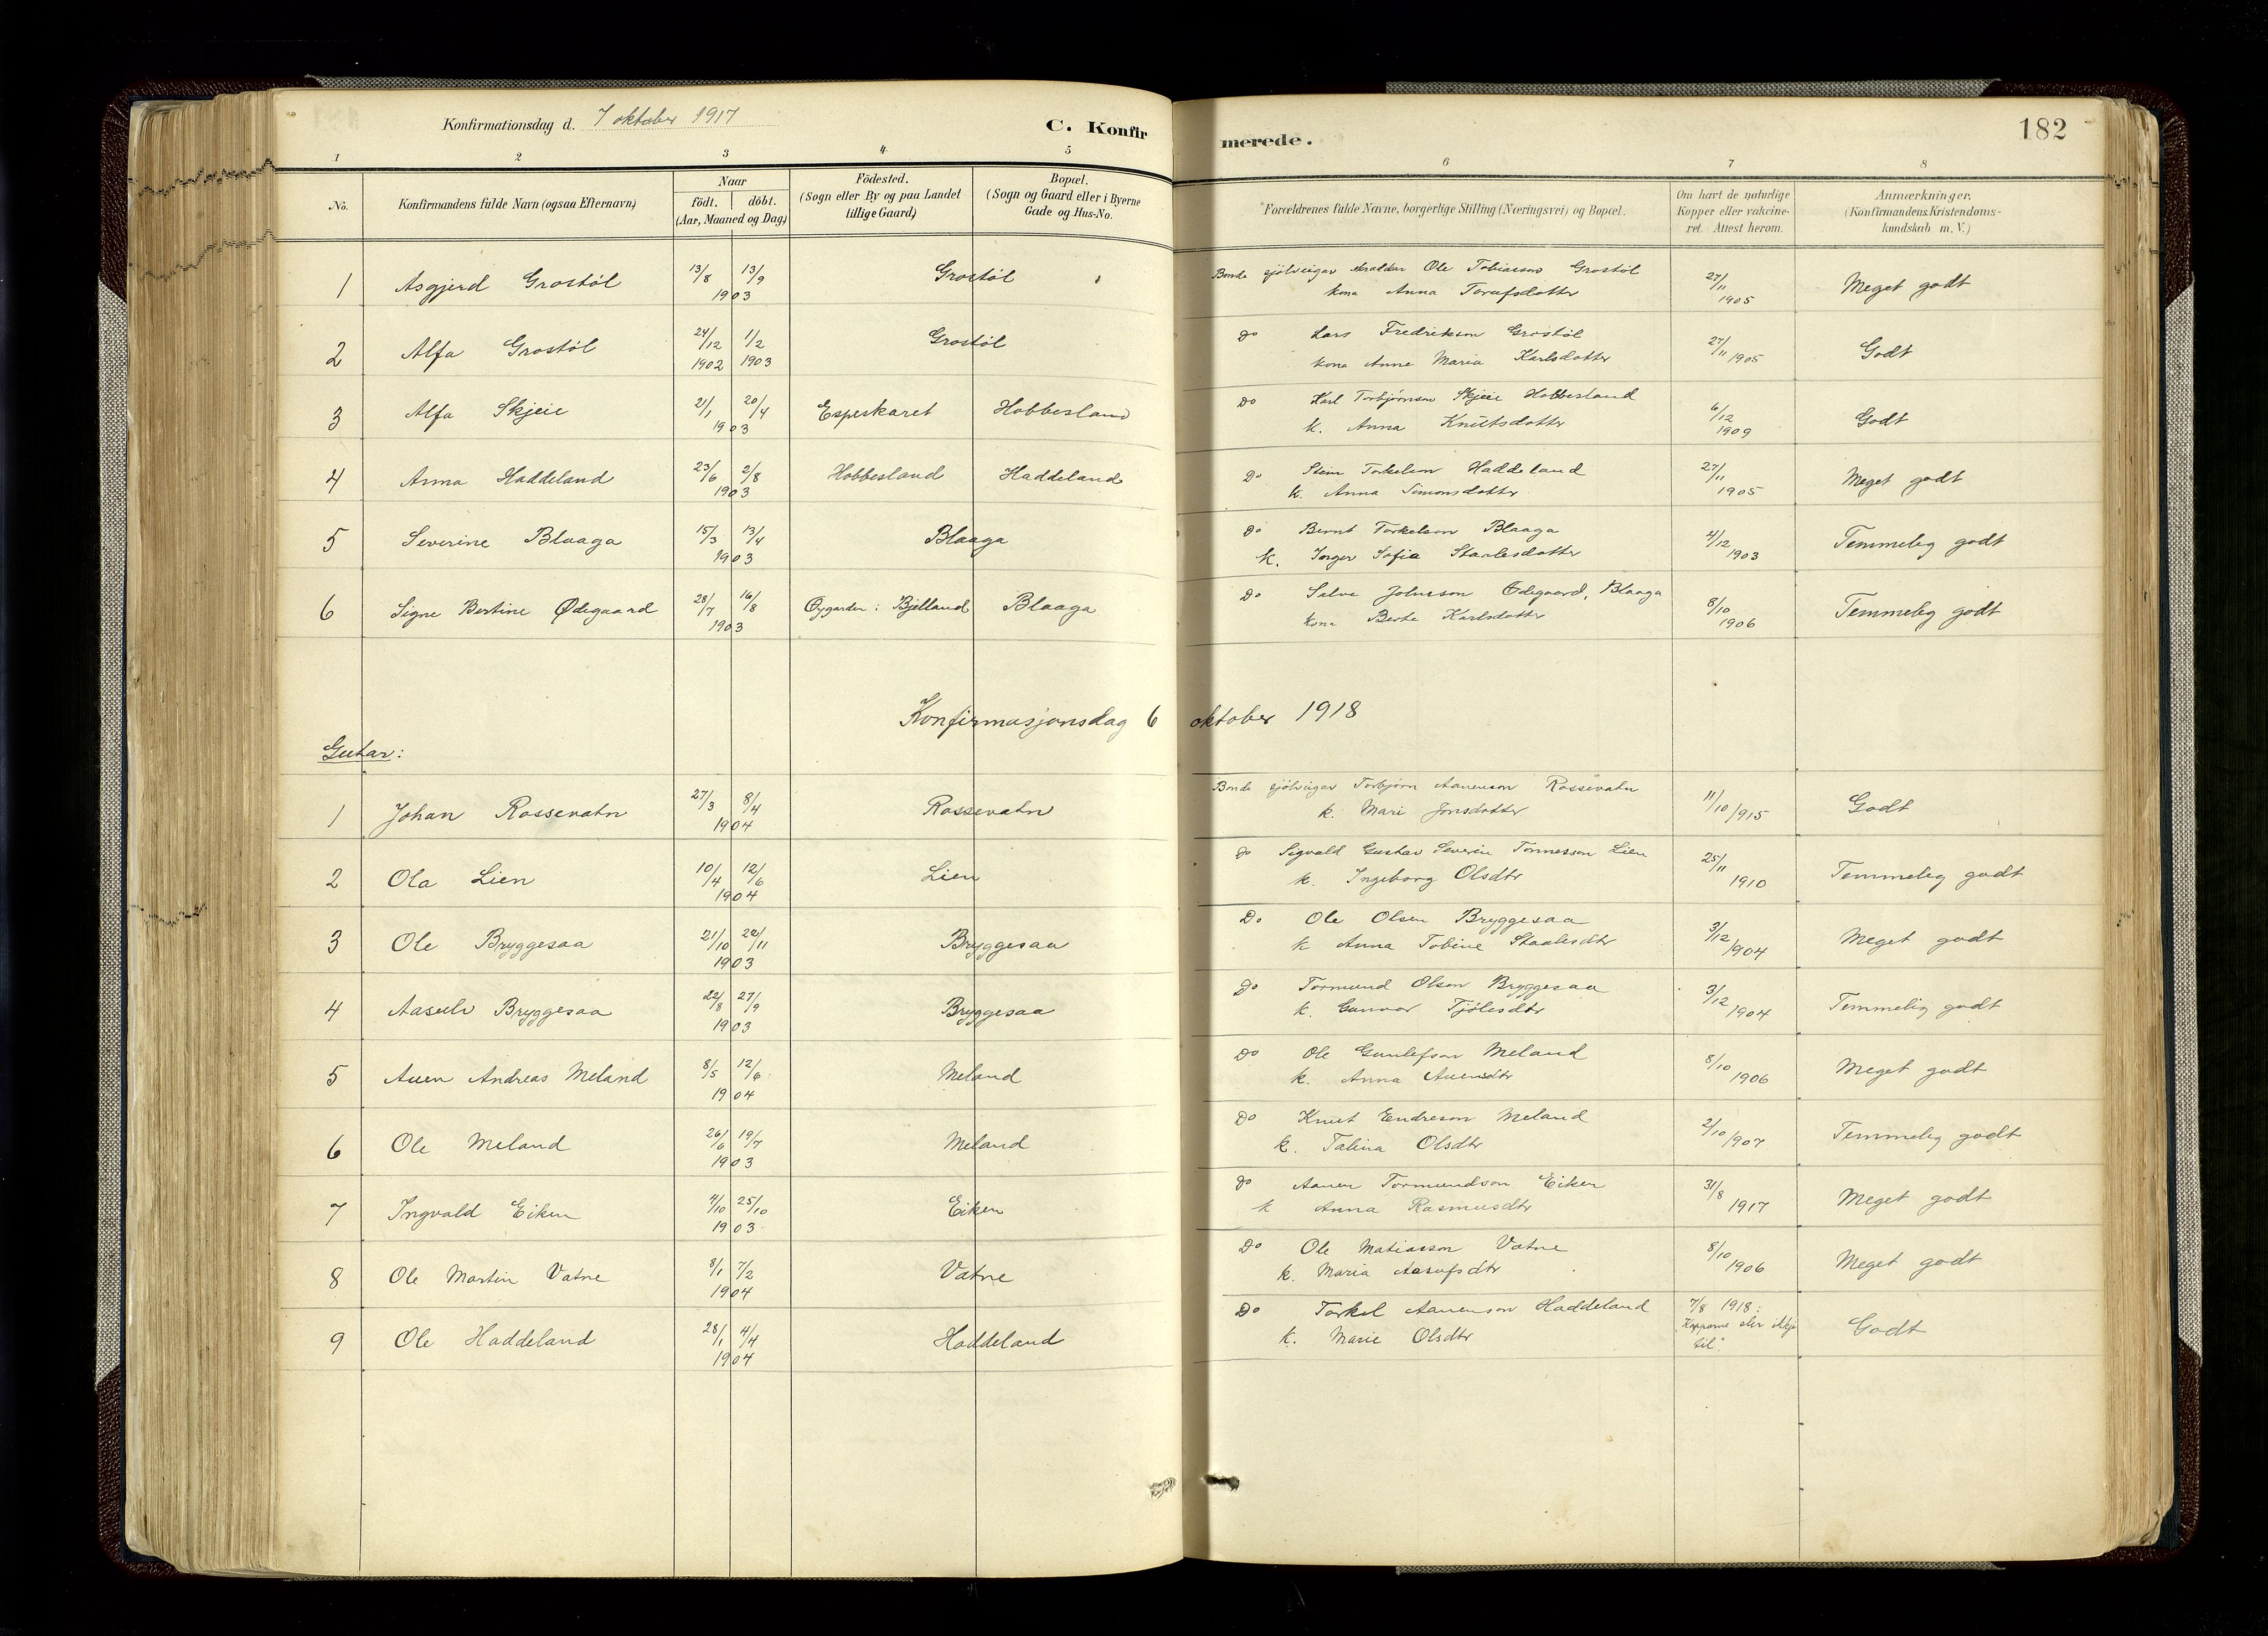 Konfirmationsdag d. 7 oktober 1917
C. Konfir merede.
182
1 2 3 4 5 6 7 8
No.
Konfirmandens fulde Navn (ogsaa Efternavn)
Naar
födt. döbt.
(Aar, Maaned og Dag)
Födested.
(Sogn eller By og paa Landet
tillige Gaard)
Bopæl.
(Sogn og Gaard eller i Byerne
Gade og Hus-No.
Forældrenes fulde Navne, borgerlige Stilling (Næringsvei) og Bopæl.
Om havt de naturlige
Kopper eller vakcine-
ret. Attest herom.
Anmærkninger.
(Konfirmandens Kristendoms-
kundskab m. V.)
1 Asgjerd Grostöl 13/8 13/9 1903 Grostöl Bonde sjölveigar Ole Tobiasson Grostöl
kona Anna Torufsdotter 27/11 1905 Meget godt
2 Alfa Grostöl 24/12 1902 1/2 1903 Grostöl Do Lars Fredrikson Grostöl
kona Anne Maria Karlsdotter 27/11 1905 Godt
3 Alfa Skjeie 21/1 20/4 1903 Espeskaret Hobbesland Do Karl Torbjörnson Skjeie Hobbesland
k. Anna Knutsdotter 6/12 1909 Godt
4 Anna Haddeland 23/6 2/8 1903 Hobbesland Haddeland Do Stein Torkelson Haddeland
k. Anna Simonsdotter 27/11 1905 Meget godt
5 Severine Blaaga 15/3 13/4 1903 Blaaga Do Bernt Torkelson Blaaga
k. Inger Sofia Staalesdotter 4/12 1903 Temmeleg godt
6 Signe Bertine Ødegaard 28/7 16/8 1903 Øygarden i Bjelland Blaaga Do Salve Johnson Ødegaard, Blaaga
kona Berte Karlsdotter 8/10 1906 Temmeleg godt
Konfirmasjonsdag 6 oktober 1918
Gutar:
1 Johan Rossevatn 27/3 8/4 1904 Rossevatn Bonde sjölveigar Torbjörn Aanenson Rossevatn
k. Mari Jonsdotter 11/10 1915 Godt
2 Ola Lien 10/4 12/6 1904 Lien Do Sigvald Gustav Severin Tönnesson Lien
k. Ingeborg Olsdtr 25/11 1910 Temmeleg godt
3 Ole Bryggesaa 21/10 22/11 1903 Bryggesaa Do Ole Olsen Bryggesaa
k Anna Tobine Staalesdtr 3/12 1904 Meget godt
4 Aasulv Bryggesaa 22/8 27/9 1903 Bryggesaa Do Tormund Olson Bryggesaa
k. Gunvor Tjölesdtr 3/12 1904 Temmelig godt
5 Auen Andreas Meland 8/5 12/6 1904 Meland Do Ole Gunlefson Meland
k. Anna Auensdtr 8/10 1906 Meget godt
6 Ole Meland 26/6 19/7 1903 Meland Do Knut Endreson Meland
k. Talina Olsdtr 2/10 1907 Temmeleg godt
7 Ingvald Eiken 4/10 25/10 1903 Eiken Do Aanen Tormundson Eiken
k Anna Rasmusdtr 31/8 1917 Meget godt
8 Ole Martin Vatne 8/1 7/2 1904 Vatne Do Ole Matiasson Vatne
k. Maria Aasufsdtr 8/10 1906 Meget godt
9 Ole Haddeland 28/1 4/4 1904 Haddeland Do Torkel Aanenson Haddeland
k. Marie Olsdtr 7/8 1918: "Kopparne sler ikkje til". Godt